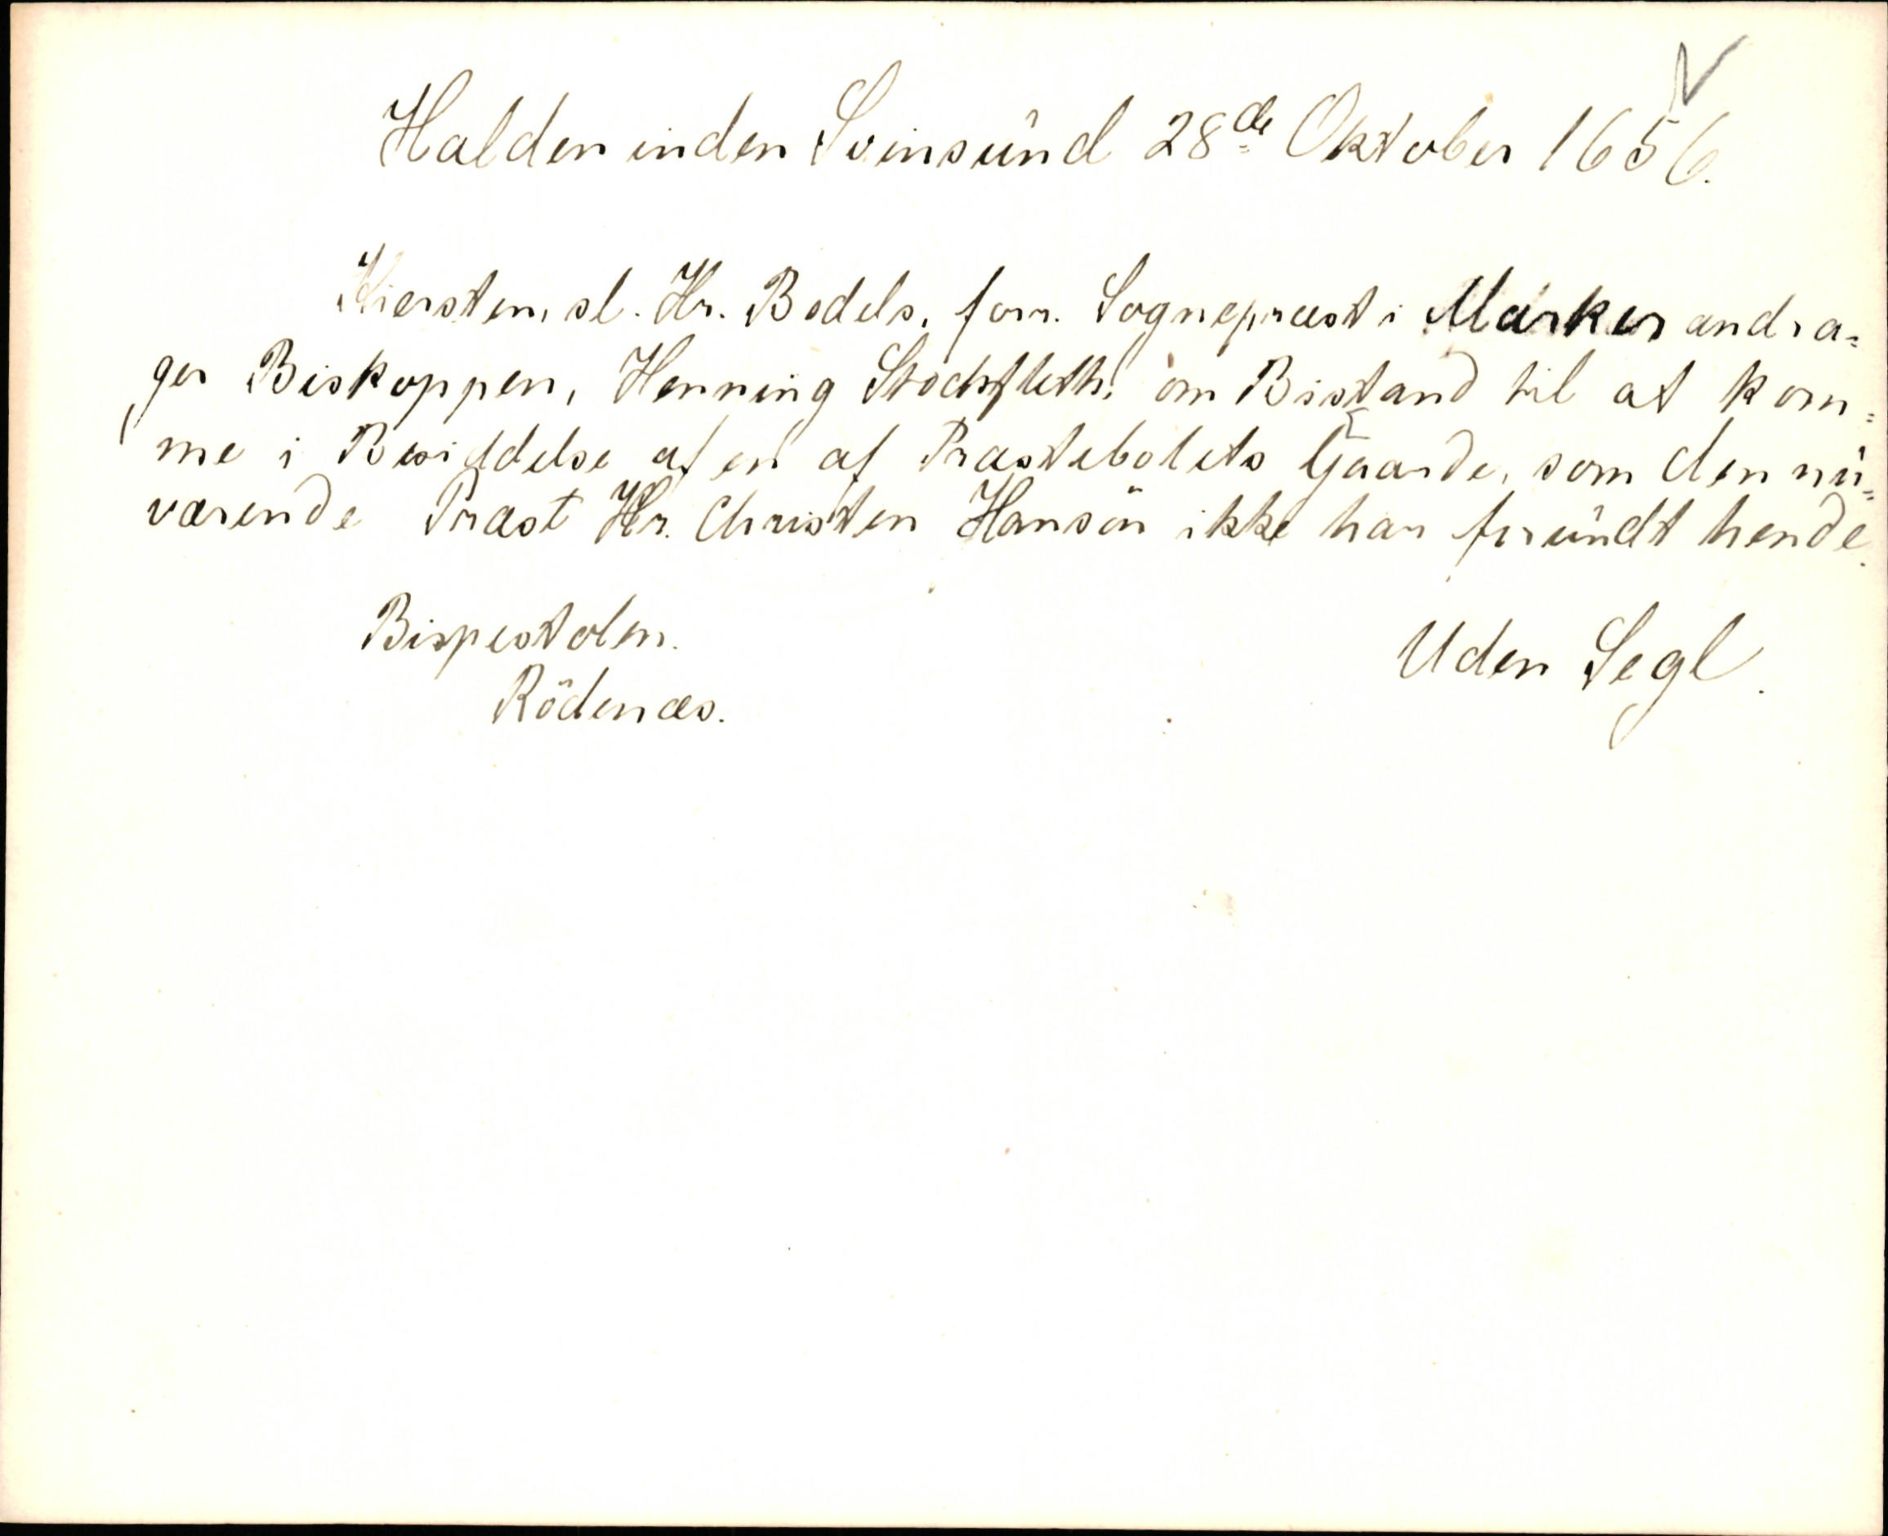 Halden inden Svinsund 28de Oktober 1656.
Kiersten, sl. Hr. Bodels, forr. Sognepræst i Marker andra=
ger Biskoppen, Henning Stochfleth! om Bistand til at kom=
me i Besiddelse af en af Præstebolets Gaarde, som den nu=
værende Præst Hr. Christen Hansön ikke har frundt hende.
Bispestolen.
Uden Segl.
Rödenæs.